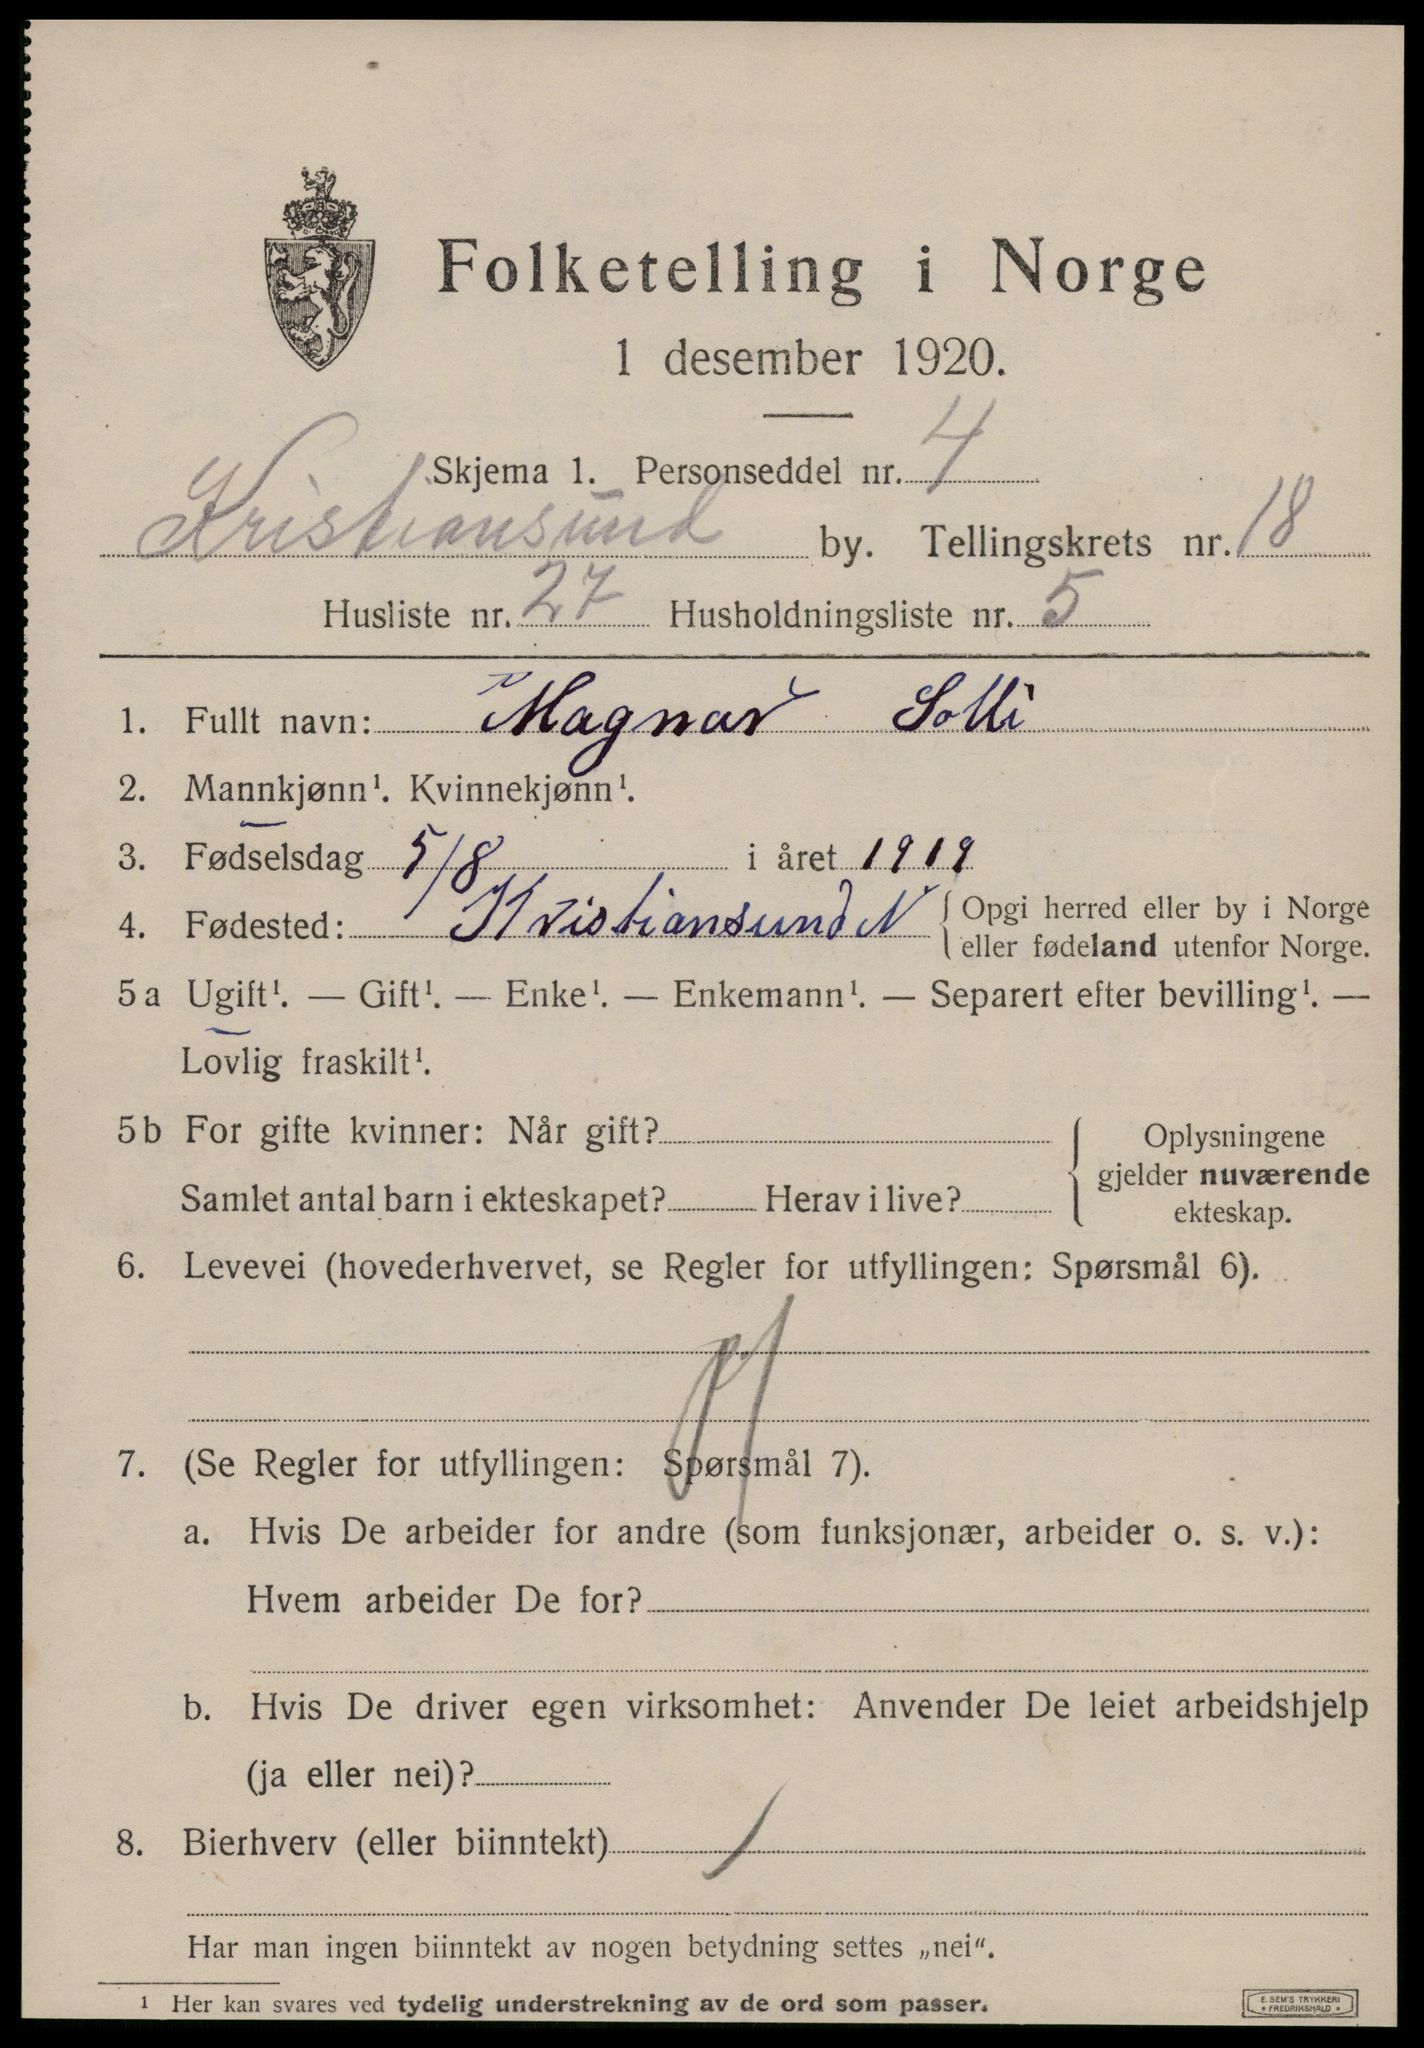 Folketelling i Norge
1 desember 1920.
Skjema 1. Personseddel nr. 4
Kristiansund by. Tellingskrets nr. 18
Husliste nr. 27 Husholdningsliste nr. 5
1. Fullt navn: Magnar Solli
2. Mannkjønn¹. Kvinnekjønn¹.
3. Fødselsdag 5/8 i året 1919
4. Fødested: Kristiansund N { Opgi herred eller by i Norge
eller fødeland utenfor Norge.
5a Ugift¹. — Gift¹. — Enke¹. — Enkemann¹. — Separert efter bevilling¹. —
Lovlig fraskilt¹.
5b For gifte kvinner: Når gift?
Samlet antal barn i ekteskapet? Herav i live?
{ Oplysningene
gjelder nuværende
ekteskap.
6. Levevei (hovederhvervet, se Regler for utfyllingen: Spørsmål 6).
7. (Se Regler for utfyllingen: Spørsmål 7).
a. Hvis De arbeider for andre (som funksjonær, arbeider o. s. v.):
Hvem arbeider De for?
b. Hvis De driver egen virksomhet: Anvender De leiet arbeidshjelp
(ja eller nei)?
8. Bierhverv (eller biinntekt)
Har man ingen biinntekt av nogen betydning settes „nei“.
¹ Her kan svares ved tydelig understrekning av de ord som passer.
E. SEM'S TRYKKERI
• FREDRIKSHALD •